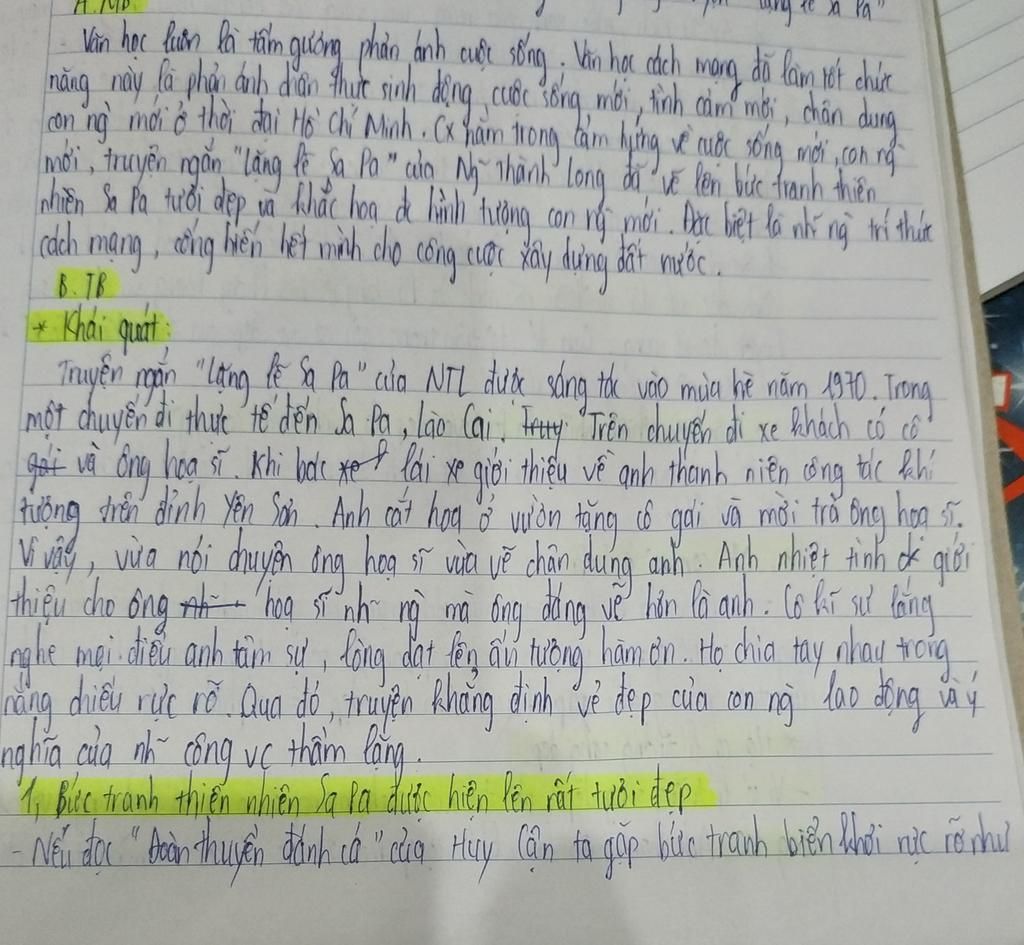 A. MB.
lặng lẽ Sa Pa"
- Văn học luôn là tấm gương phản ánh cuộc sống. Văn học cách mạng đã làm tốt chức
năng này là phản ánh chân thực sinh động cuộc sống mới, tình cảm mới, chân dung
con ng` mới ở thời đại Hồ Chí Minh. Cx nằm trong cảm hứng về cuộc sống mới, con ng`
mới, truyện ngắn "Lặng lẽ Sa Pa" của Ng~ Thành Long đã vẽ lên bức tranh thiên
nhiên Sa Pa tươi đẹp và khắc hoạ đc hình tượng con ng` mới. Đặc biệt là nh~ ng` trí thức
cách mạng, cống hiến hết mình cho công cuộc xây dựng đất nước.
B. TB
* Khái quát:
Truyện ngắn "Lặng lẽ Sa Pa" của NTL được sáng tác vào mùa hè năm 1970. Trong
một chuyến đi thực tế đến Sa Pa, Lào Cai. Trên chuyến đi xe khách có cô
gái và ông hoạ sĩ. Khi bác lái xe giới thiệu về anh thanh niên công tác khí
tượng trên đỉnh Yên Sơn. Anh cắt hoa ở vườn tặng cô gái và mời trà ông hoạ sĩ.
Vì vậy, vừa nói chuyện ông hoạ sĩ vừa vẽ chân dung anh. Anh nhiệt tình giới
thiệu cho ông hoạ sĩ nh~ ng` mà ông đáng vẽ hơn là anh. Cô kĩ sư lắng
nghe mọi điều anh tâm sự, lòng dạt lên ấn tượng hàm ơn. Họ chia tay nhau trong
nắng chiều rực rỡ. Qua đó, truyện khẳng định vẻ đẹp của con ng` lao động và ý
nghĩa của nh~ công vc thầm lặng.
1, Bức tranh thiên nhiên Sa Pa được hiện lên rất tươi đẹp
- Nếu đọc "Đoàn thuyền đánh cá" của Huy Cận ta gặp bức tranh biển khơi rực rỡ như